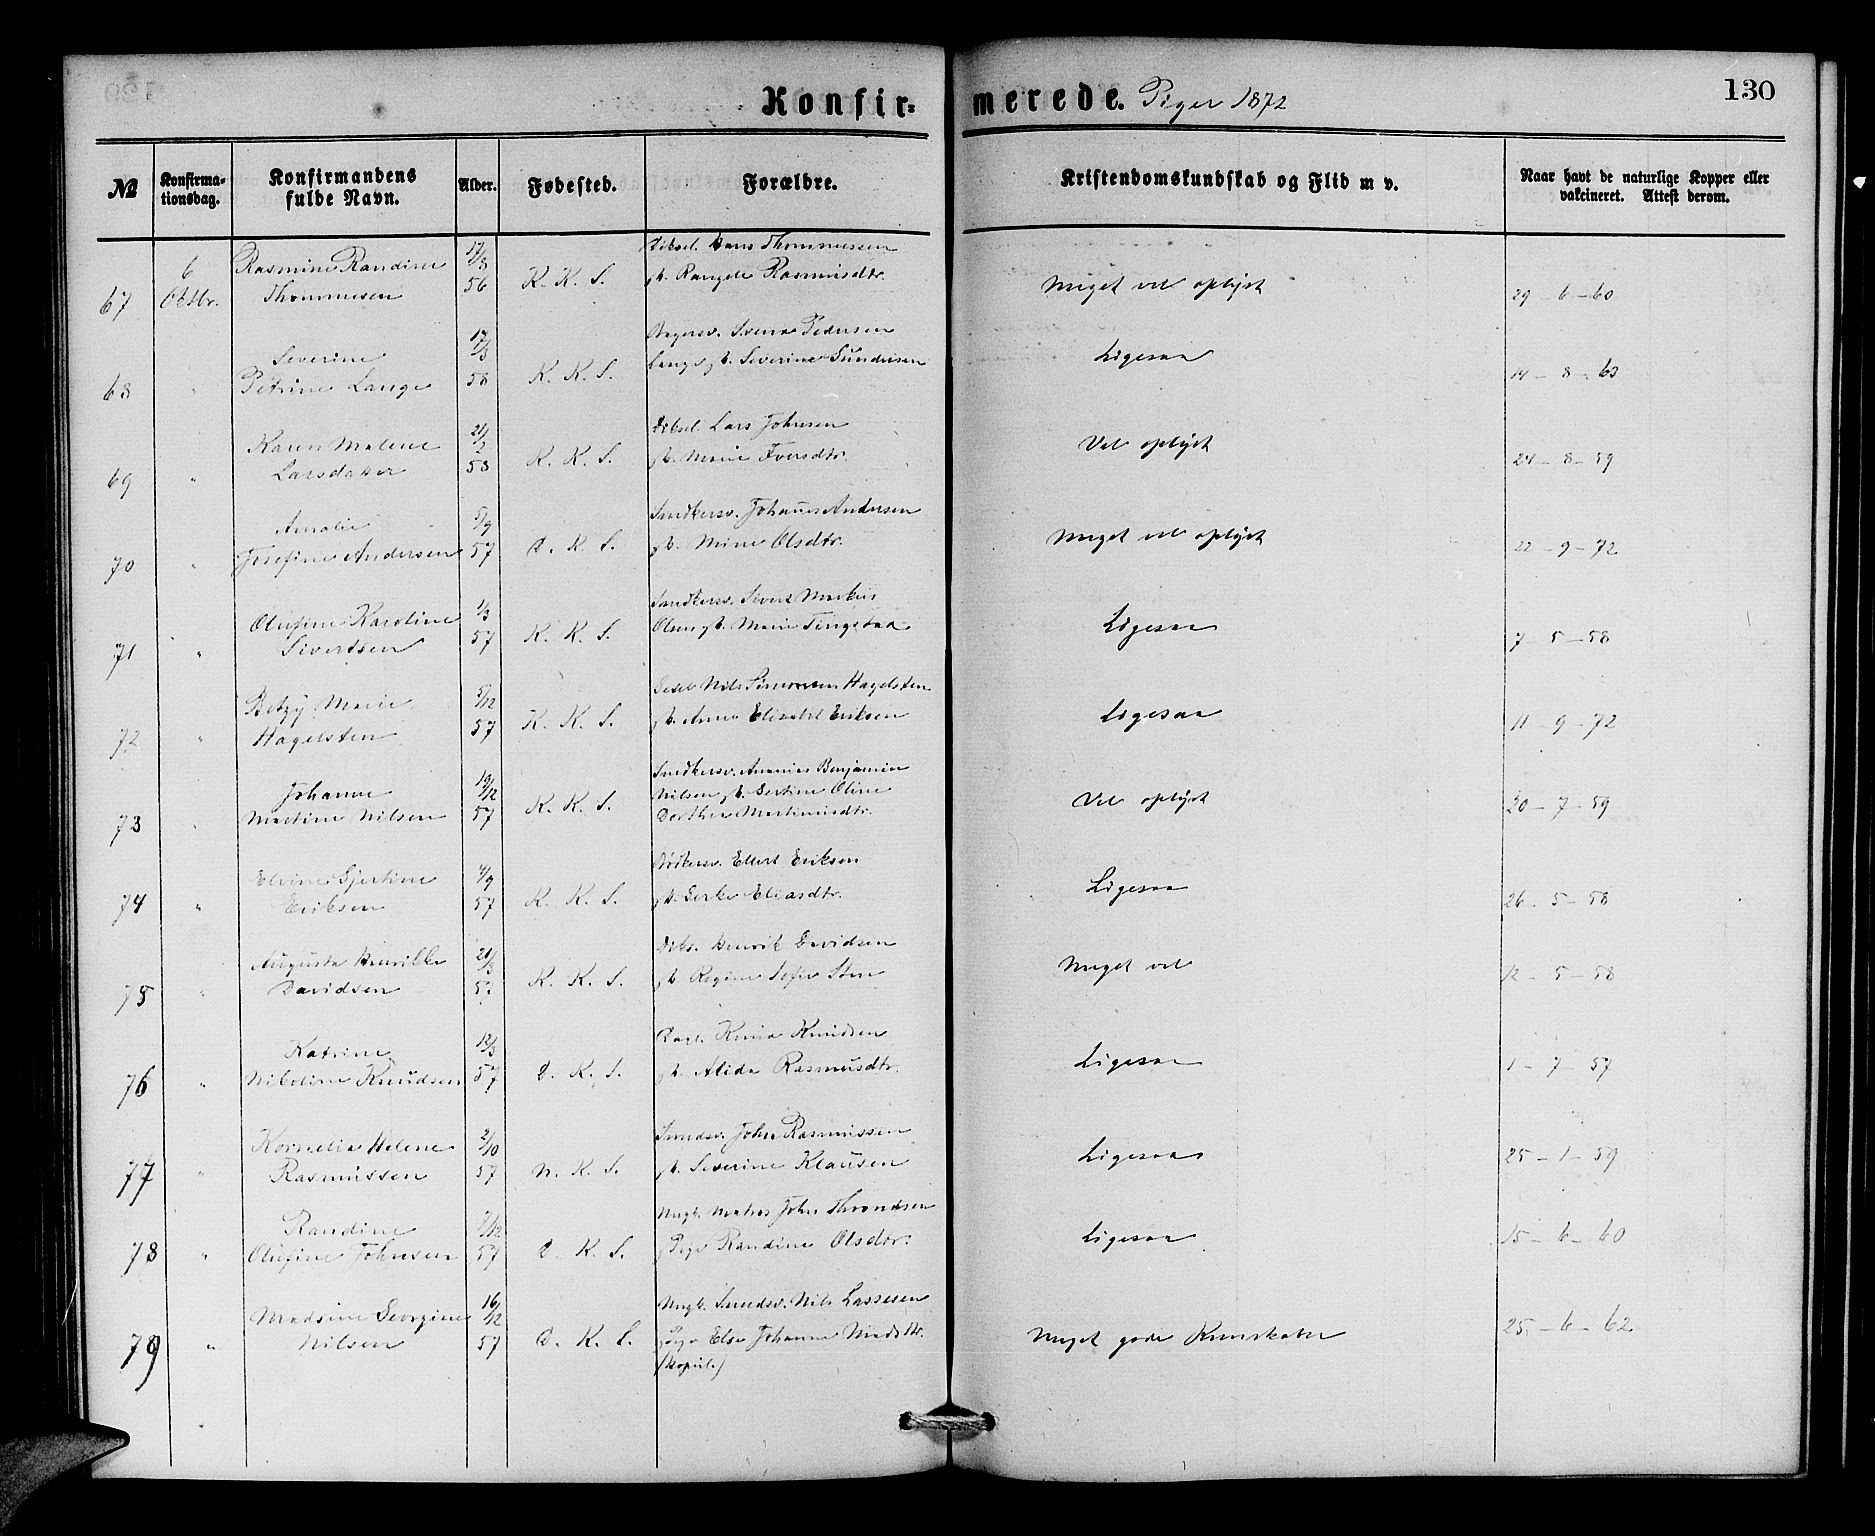 Konfir=
merede. Piger 1872
130
№ Konfirma-tionsdag. Konfirmandens fulde Navn. Alder. Fødested. Forældre. Kristendomskundskab og Flid m v. Naar havt de naturlige Kopper eller vakcineret. Attest derom.
6 Rasmine Randine 17/3 Hans Thommesen
67 Oktbr. Thommesen 56 K. K. S. gt. Rangele Rasmusdtr. Meget vel oplyst 29 - 6 - 60
Severine 17/3 Svend Pedersen
68 " Petrine Lange 58 K. K. S. Lange gt. Severine Gundersen Ligesaa 14 - 8 - 63
Karen Malene 21/2 Lars Johnsen
69 " Larsdatter 58 K. K. S. gt. Marie Iversdtr. Vel oplyst 24 - 8 - 59
Amalie 5/9 Snedkersv. Johannes Andersen
70 " Josefine Andersen 57 D. K. S. gt. Mine Olsdtr. Meget vel oplyst 22 - 9 - 72
Olufine Karoline 1/3 Snedkersv. Sivert Markus
71 " Sivertsen 57 K. K. S. Olsen gt. Marie Tengesdal Ligesaa 7 - 5 - 58
Betzy Marie 5/12 Nils Simonsen Hagelsten
72 " Hagelsten 57 K. K. S. gt. Anne Elisabet Eriksen Ligesaa 11 - 9 - 72
Johanne 19/12 Snedkersv. Ananias Benjamin
73 " Martine Nilsen 57 K. K. S. Nilsen gt. Gertine Oline Vel oplyst 20 - 7 - 59
Dorthea Martinusdtr.
Elvine Gjertine 4/9 Bødkersv. Ellert Eriksen
74 " Eriksen 57 K. K. S. gt. Serke Eliasdtr. Ligesaa 26 - 5 - 58
Augusta Henrikke 21/3 Henrik Davidsen
75 " Davidsen 57 K. K. S. gt. Regine Sofie Sten Meget vel 12 - 5 - 58
Katrine 12/3 Dagl. Knud Knudsen
76 " Nikoline Knudsen 57 D. K. S. gt. Alida Rasmusdtr. Ligesaa 1 - 7 - 57
Kornelia Helene 2/10 Smedsv. John Rasmussen
77 " Rasmussen 57 N. K. S. gt. Severine Klausen Ligesaa 25 - 1 - 59
Randine 7/12 Ungk. Matros John Throndsen
78 " Olufine Johnsen 57 D. K. S. Pige Randine Olsdtr. Ligesaa 15 - 6 - 60
Madsine Georgine 16/12 Ungk. Smedsv. Nils Lassesen
79 " Nilsen 57 D. K. S. Pige Else Johanne Madsdtr. Meget gode Kundskaber 25 - 6 - 62
(kopul.)